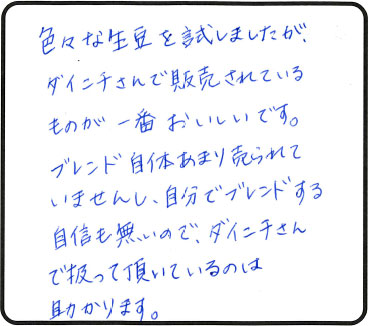 色々な生豆を試しましたが、
ダイニチさんで販売されている
ものが一番おいしいです。
ブレンド自体あまり売られて
いませんし、自分でブレンドする
自信も無いので、ダイニチさん
で扱って頂いているのは
助かります。